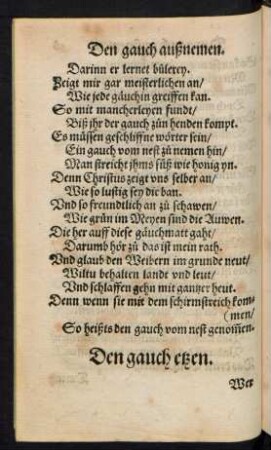 Den gauch außnemen.
Darinn er lernet bülerey.
Zeigt mir gar meisterlichen an/
Wie jede gäuchin greiffen kan.
So mit mancherleyen fundt/
Biß jhr der gauch zün henden kompt.
Es müssen geschliffne wörter sein/
Ein gauch vom nest zů nemen hin/
Man streicht jhms süß wie honig yn.
Denn Christus zeigt vns selber an/
Wie so lustig sey die ban.
Vnd so freundtlich an zů schawen/
Wie grün im Meyen sind die Auwen.
Die her auff diese gäuchmatt gaht/
Darumb hör zů das ist mein rath.
Vnd glaub den Weibern im grunde neut/
Wiltu behalten landt vnd leut/
Vnd schlaffen gehn mit gantzer heut.
Denn wenn sie mit dem schirmstreich kom-
(men/
So heißts den gauch vom nest genom̃en.
Den gauch etzen.
Wer